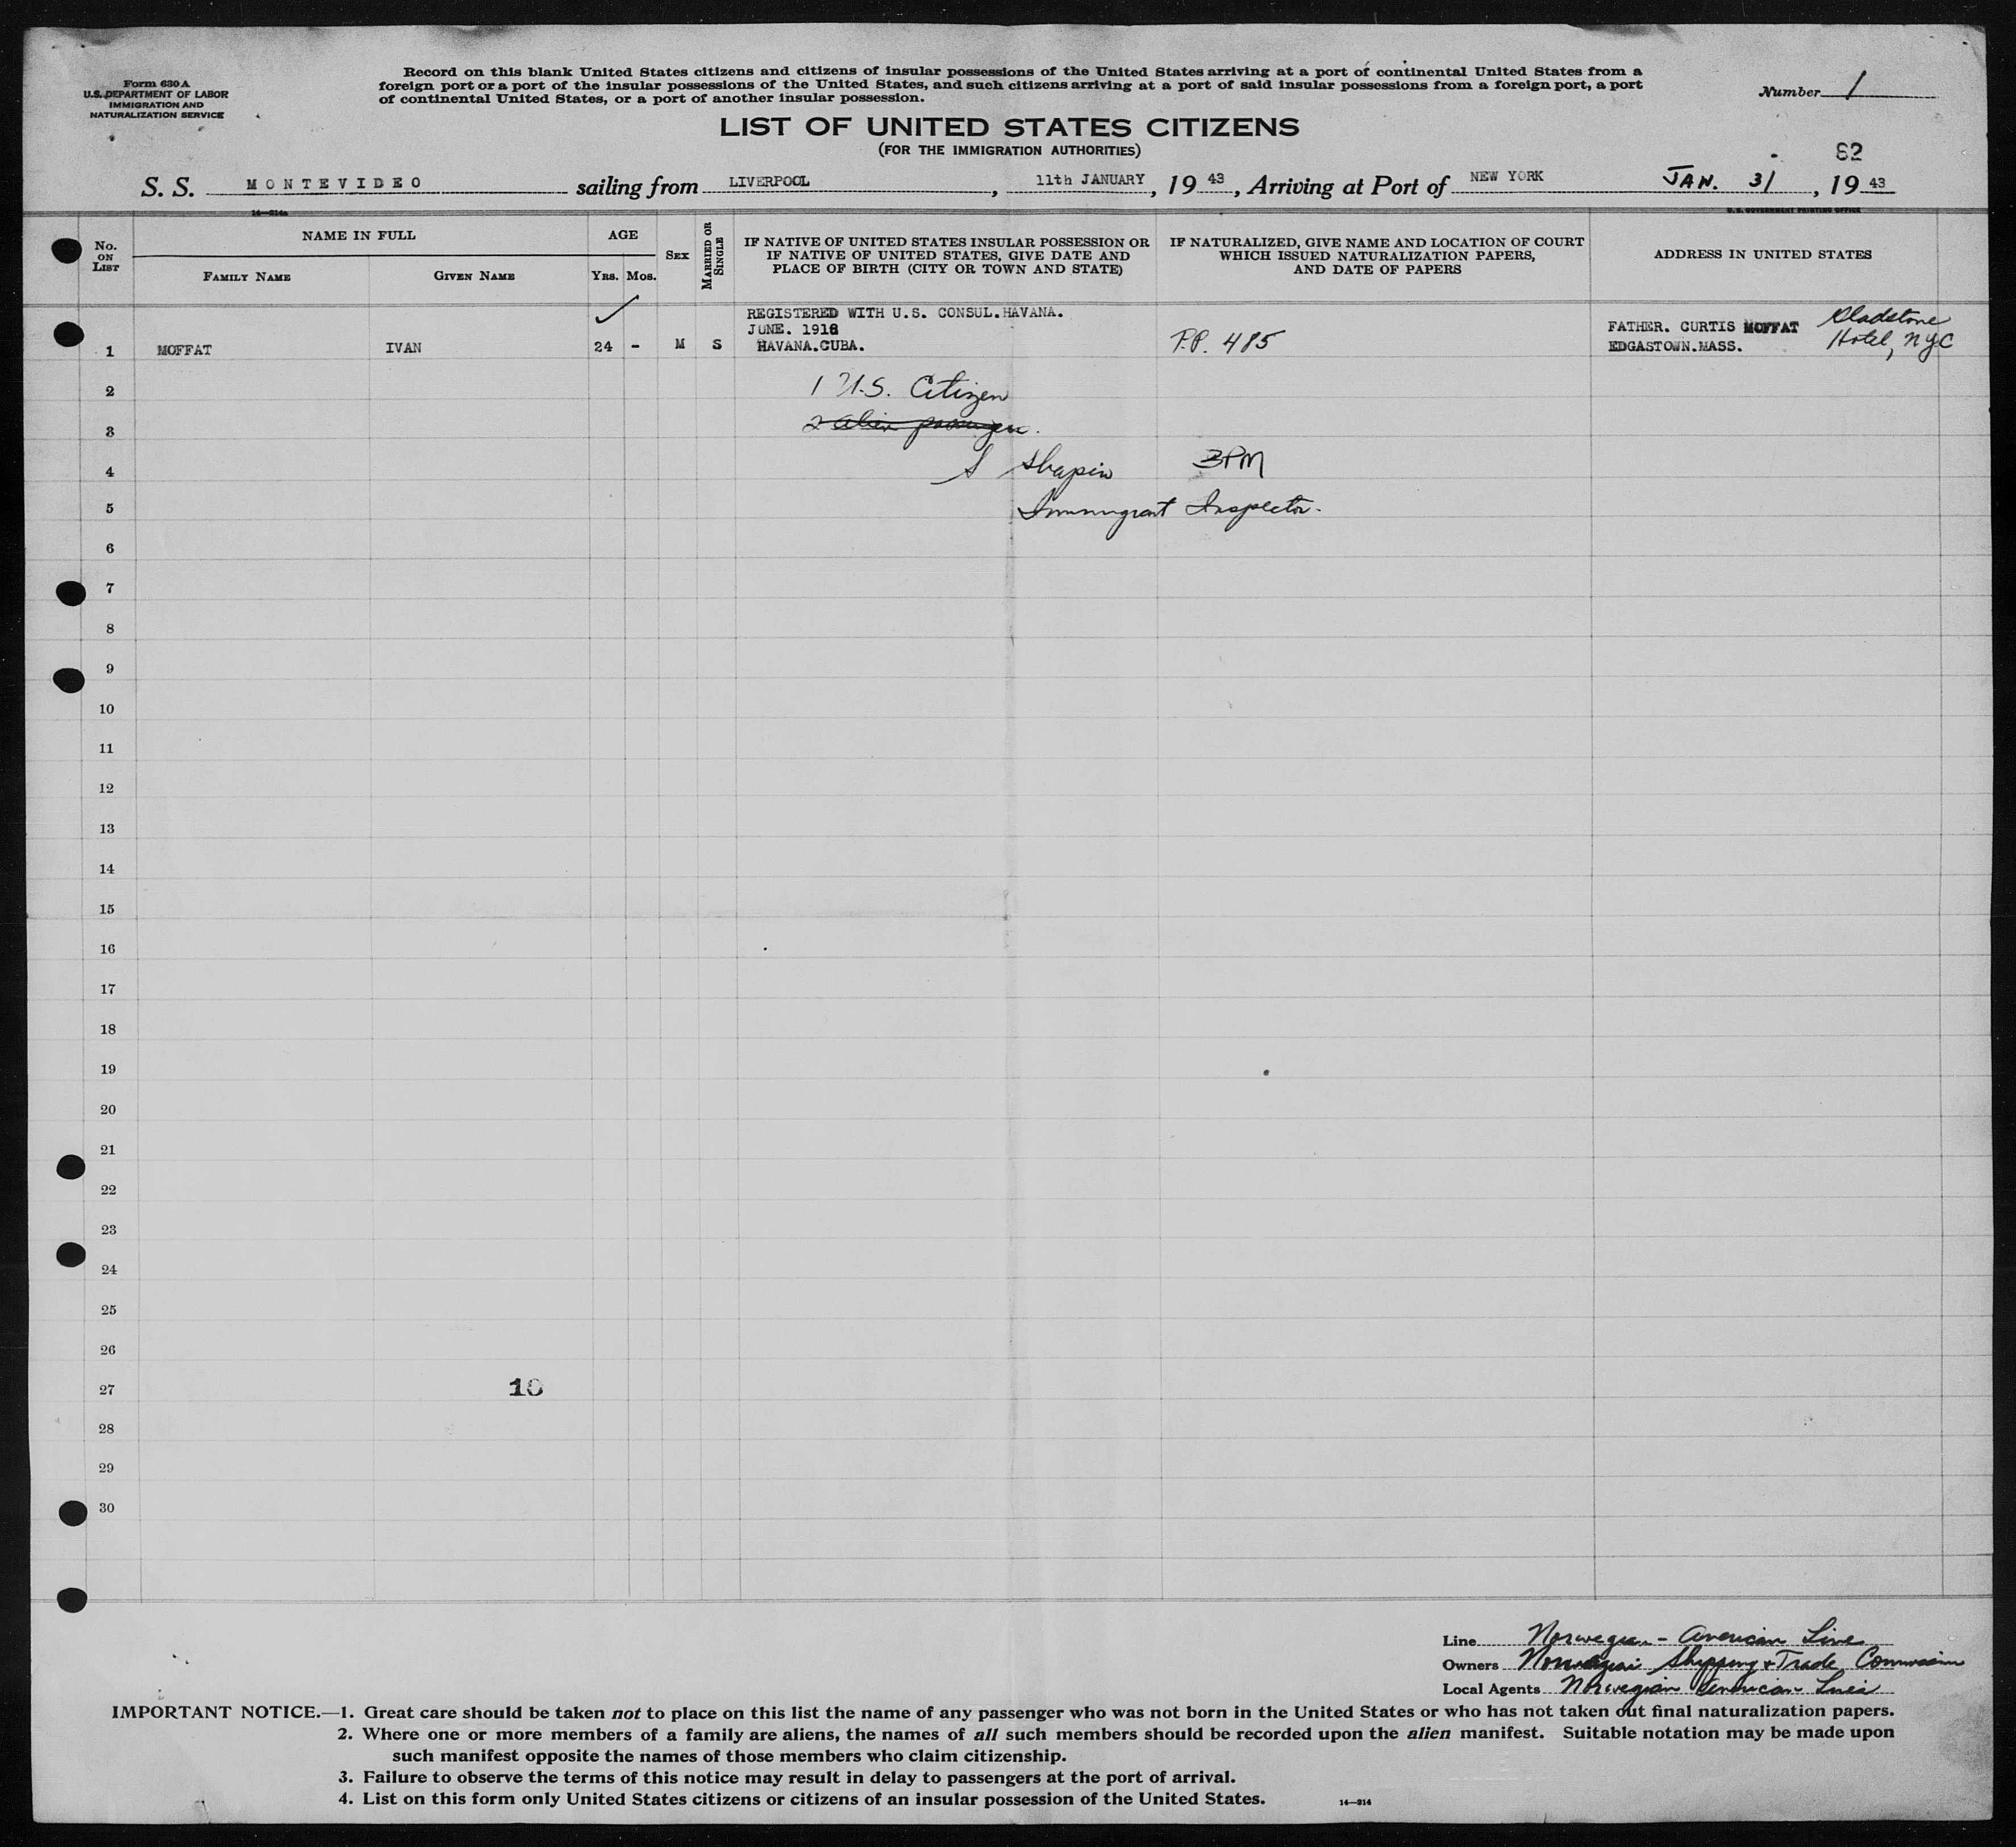 Form 630 A
U.S. DEPARTMENT OF LABOR
IMMIGRATION AND
NATURALIZATION SERVICE
Record on this blank United States citizens and citizens of insular possessions of the United States arriving at a port of continental United States from a
foreign port or a port of the insular possessions of the United States, and such citizens arriving at a port of said insular possessions from a foreign port, a port
of continental United States, or a port of another insular possession.
Number 1
LIST OF UNITED STATES CITIZENS
(FOR THE IMMIGRATION AUTHORITIES)
82
S. S. MONTEVIDEO sailing from LIVERPOOL, 11th JANUARY, 19 43, Arriving at Port of NEW YORK JAN. 31, 19 43
14—214a
U. S. GOVERNMENT PRINTING OFFICE
No. ON LIST
NAME IN FULL
FAMILY NAME GIVEN NAME
AGE
YRS. MOS.
SEX
MARRIED OR SINGLE
IF NATIVE OF UNITED STATES INSULAR POSSESSION OR
IF NATIVE OF UNITED STATES, GIVE DATE AND
PLACE OF BIRTH (CITY OR TOWN AND STATE)
IF NATURALIZED, GIVE NAME AND LOCATION OF COURT
WHICH ISSUED NATURALIZATION PAPERS,
AND DATE OF PAPERS
ADDRESS IN UNITED STATES
REGISTERED WITH U.S. CONSUL.HAVANA.
JUNE. 1918
1 MOFFAT IVAN 24 - M S HAVANA.CUBA. P.P. 485
FATHER. CURTIS MOFFAT
EDGASTOWN.MASS.
Gladstone
Hotel, NYC
2 1 U.S. Citizen
3 2 alien passengers.
4 S Shapiro 3PM
5 Immigrant Inspector.
6
7
8
9
10
11
12
13
14
15
16
17
18
19
20
21
22
23
24
25
26
27 10
28
29
30
Line Norwegian-American Line
Owners Norwegian Shipping & Trade Commission
Local Agents Norwegian American Line
IMPORTANT NOTICE.—1. Great care should be taken not to place on this list the name of any passenger who was not born in the United States or who has not taken out final naturalization papers.
2. Where one or more members of a family are aliens, the names of all such members should be recorded upon the alien manifest. Suitable notation may be made upon
such manifest opposite the names of those members who claim citizenship.
3. Failure to observe the terms of this notice may result in delay to passengers at the port of arrival.
4. List on this form only United States citizens or citizens of an insular possession of the United States.
14—214